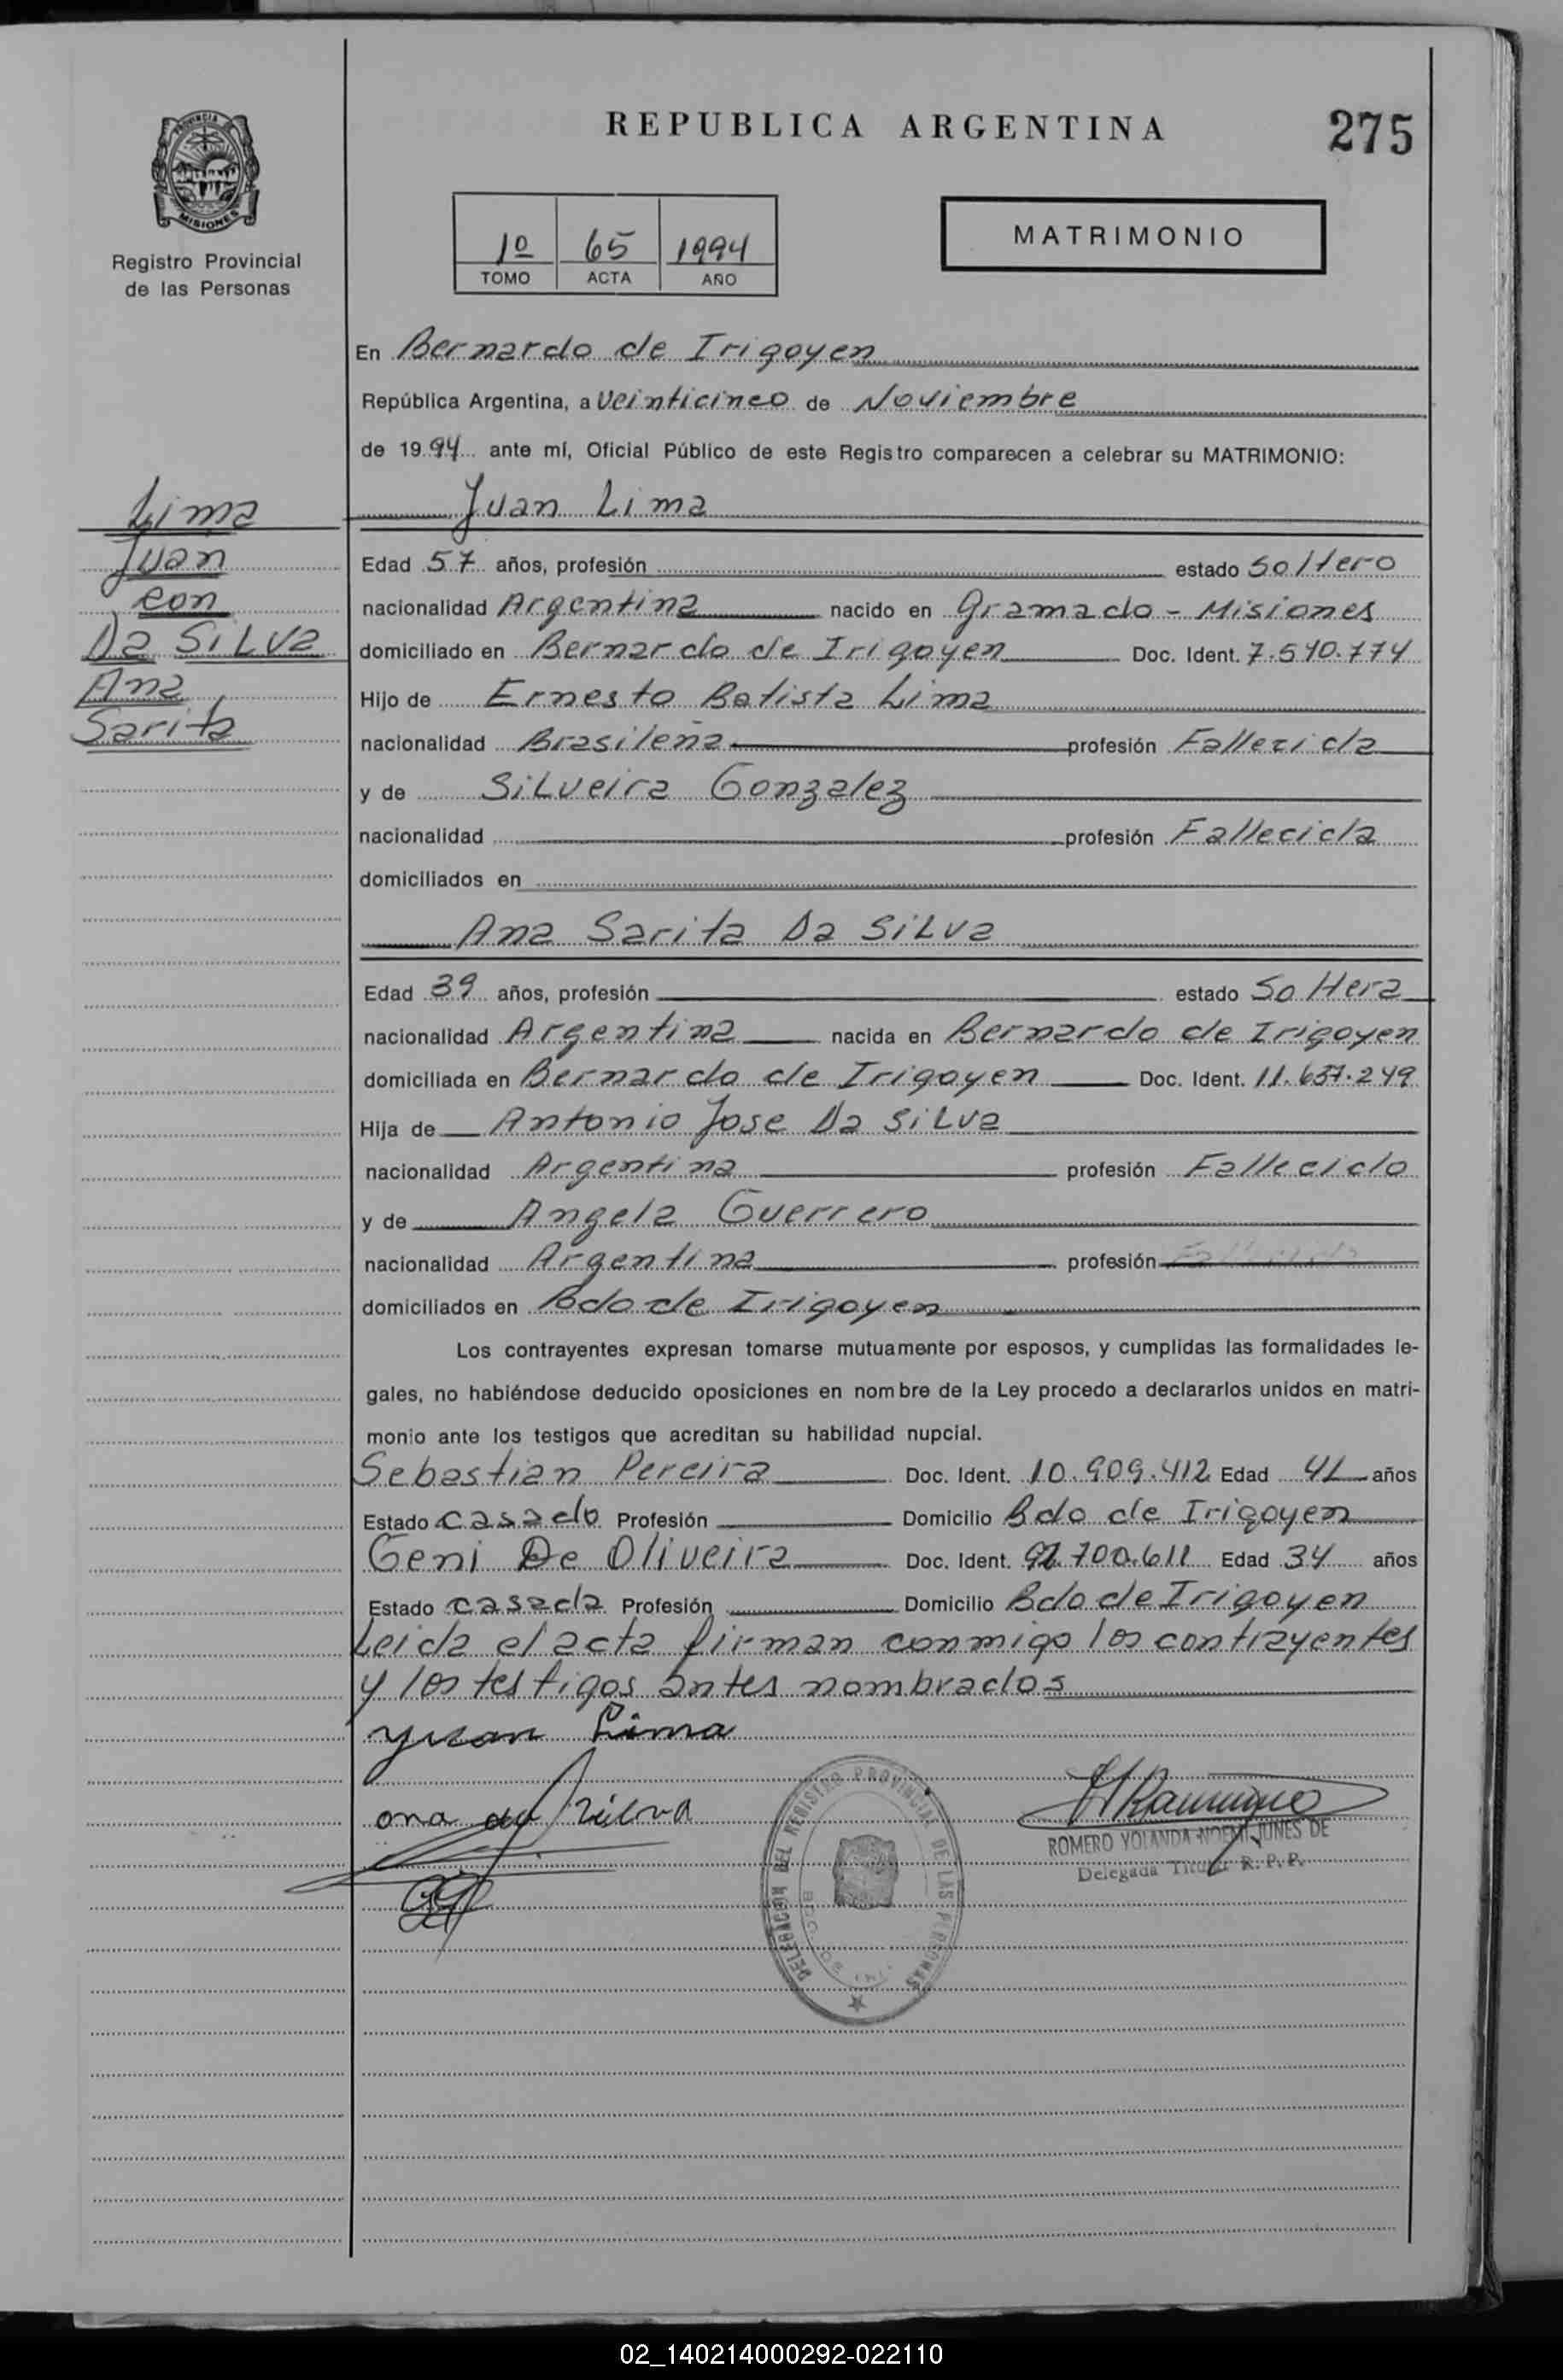 REPUBLICA ARGENTINA
275
PROVINCIA DE
MISIONES
Registro Provincial
de las Personas
1º 65 1994
TOMO ACTA AÑO
MATRIMONIO
En Bernardo de Irigoyen
República Argentina, a veinticinco de Noviembre
de 1994 ante mí, Oficial Público de este Registro comparecen a celebrar su MATRIMONIO:
Lima
Juan
con
Da SiLva
Ana
Sarita
Juan Lima
Edad 57 años, profesión estado Soltero
nacionalidad Argentina nacido en Gramado - Misiones
domiciliado en Bernardo de Irigoyen Doc. Ident. 7.540.774
Hijo de Ernesto Batista Lima
nacionalidad Brasileña profesión Fallecida
y de SiLveira Gonzalez
nacionalidad profesión Fallecida
domiciliados en
Ana Sarita Da SiLva
Edad 39 años, profesión estado Soltera
nacionalidad Argentina nacida en Bernardo de Irigoyen
domiciliada en Bernardo de Irigoyen Doc. Ident. 11.637.249
Hija de Antonio Jose Da SiLva
nacionalidad Argentina profesión Fallecido
y de Angela Guerrero
nacionalidad Argentina profesión
domiciliados en Bdo de Irigoyen
Los contrayentes expresan tomarse mutuamente por esposos, y cumplidas las formalidades le-
gales, no habiéndose deducido oposiciones en nombre de la Ley procedo a declararlos unidos en matri-
monio ante los testigos que acreditan su habilidad nupcial.
Sebastian Pereira Doc. Ident. 10.909.412 Edad 41 años
Estado casado Profesión Domicilio Bdo de Irigoyen
Geni De Oliveira Doc. Ident. 92.700.611 Edad 34 años
Estado casada Profesión Domicilio Bdo de Irigoyen
Leida el acta firman conmigo los contrayentes
y los testigos antes nombrados
Juan Lima
ona da Silva
DELEGACION DEL REGISTRO PROVINCIAL DE LAS PERSONAS
ROMERO YOLANDA NOEMI JUNES DE
Delegada Titular R. P. P.
02_140214000292-022110